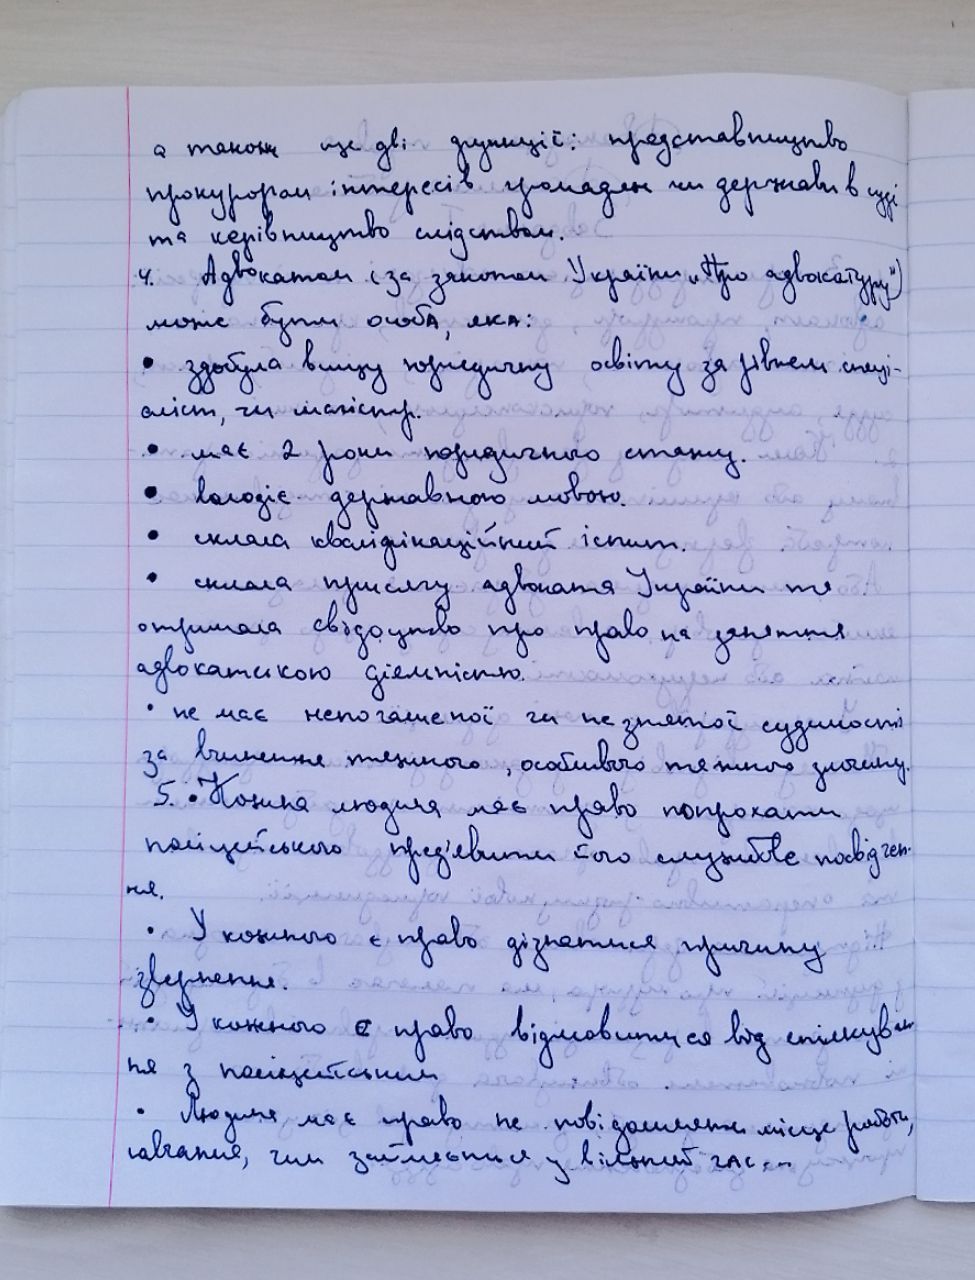 а також ще дві функції: представництво
прокурором інтересів громадян чи держави в суді
та керівництво слідством.
4. Адвокатом (за законом України „Про адвокатуру")
може бути особа, яка:
• здобула вищу юридичну освіту за рівнем спеці-
аліст, чи магістр.
• має 2 роки юридичного стажу.
• володіє державною мовою.
• склала кваліфікаційний іспит.
• склала присягу адвоката України та
отримала свідоцтво про право на заняття
адвокатською діяльністю.
• не має непогашеної чи не знятої судимості
за вчинення тяжкого, особливого тяжкого злочину.
5. • Кожна людина має право попрохати
поліцейського пред'явити його службове посвідчен-
ня.
• У кожного є право дізнатися причину
звернення.
• У кожного є право відмовитися від спілкуван
ня з поліцейським
• Людина має право не повідомляти місце роботи,
навчання, чим займається у вільний час...